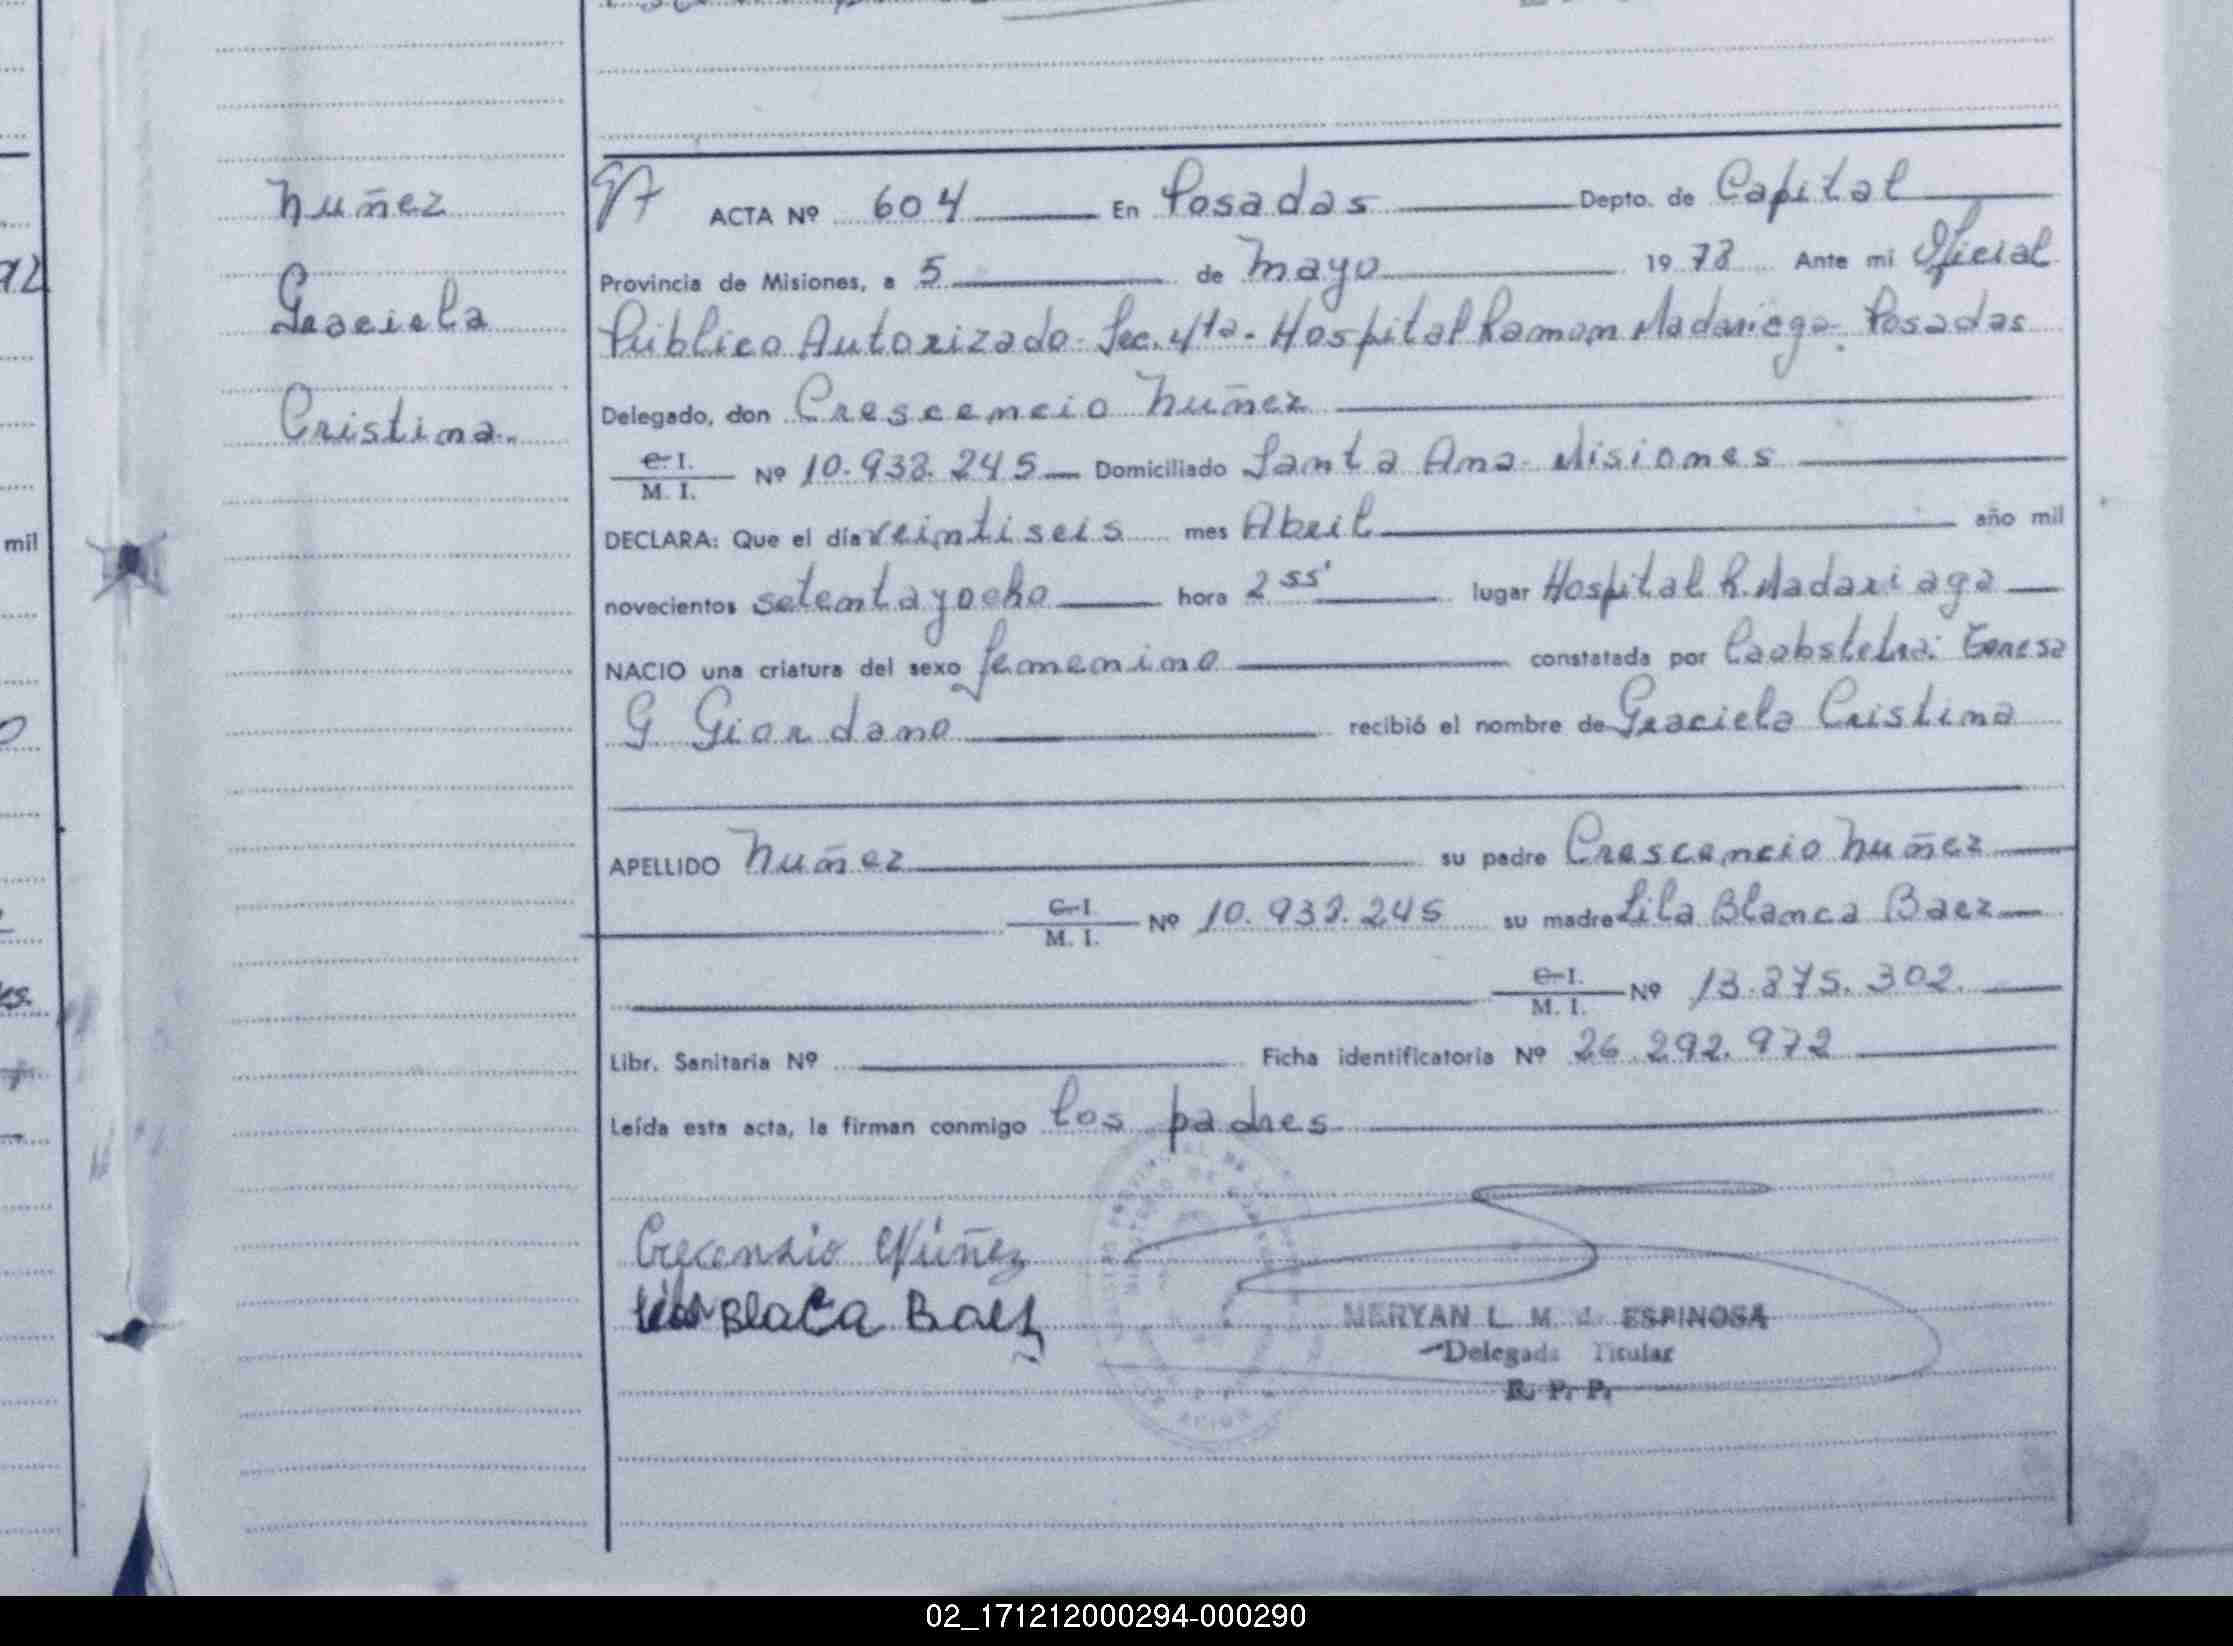 Nuñez
Graciela
Cristina.
ACTA Nº 604 En Posadas Depto. de Capital
Provincia de Misiones, a 5 de Mayo 1978 Ante mi Oficial
Público Autorizado - Sec. 4ta - Hospital Ramon Madariaga - Posadas
Delegado, don Crescencio Nuñez
C. I.
M. I. Nº 10.938.245 Domiciliado Santa Ana - Misiones
DECLARA: Que el día veintiseis mes Abril año mil
novecientos setentayocho hora 2 55' lugar Hospital R. Madariaga
NACIO una criatura del sexo femenino constatada por
G Giordano recibió el nombre de Graciela Cristina
APELLIDO Nuñez su padre Crescencio Nuñez
C. I.
M. I. Nº 10.938.245 su madre Lila Blanca Baez
C. I.
M. I. Nº 13.875.302.
Libr. Sanitaria Nº Ficha identificatoria Nº 26.292.972
Leída esta acta, la firman conmigo los padres
Núñez
Blaca Baez
MERYAN L. M. d. ESPINOSA
Delegada Titular
R. P. P.
mil
02_171212000294-000290